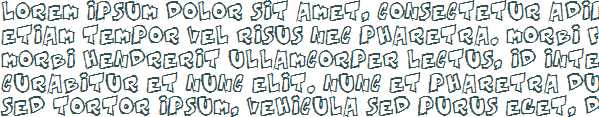 Lorem ipsum dolor sit amet, consectetur adi
Etiam tempor vel risus nec pharetra. Morbi
Morbi hendrerit ullamcorper lectus, id inte
Curabitur et nunc elit. Nunc et pharetra du
Sed tortor ipsum, vehicula sed purus eget, d